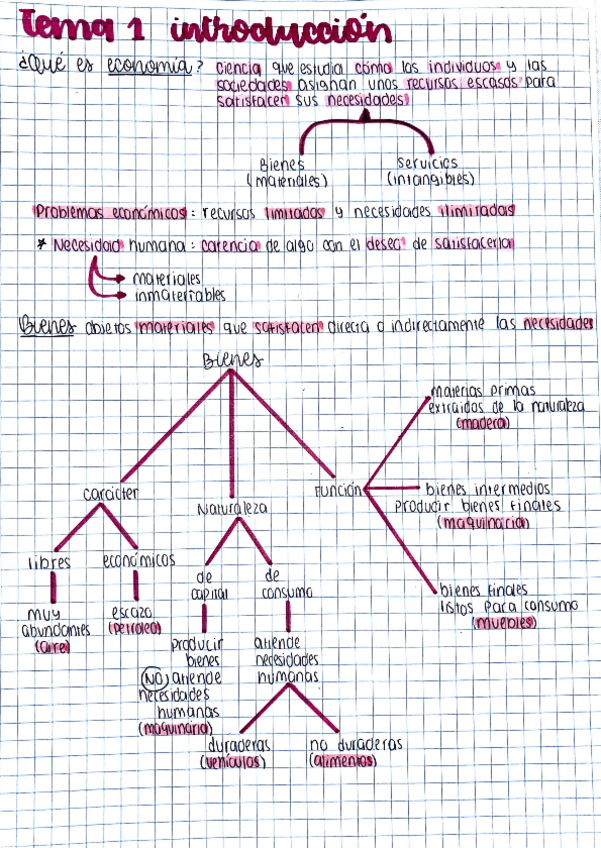 Tema 1 introducción
¿Qué es economía? ciencia que estudia cómo los individuos y las
sociedades asignan unos recursos escasos para
satisfacer sus necesidades
Bienes
(materiales)
Servicios
(intangibles)
Problemas económicos: recursos limitados y necesidades ilimitadas
* Necesidad humana: carencia de algo con el deseo de satisfacerlo
materiales
inmateriables
Bienes objetos materiales que satisfacen directa o indirectamente las necesidades
Bienes
carácter
Naturaleza
Función
materias primas
extraidos de la naturaleza
(madera)
bienes intermedios
producir bienes finales
(maquinaria)
bienes finales
listos para consumo
(muebles)
libres
económicos
muy
abundantes
(aire)
escazo
(petroleo)
de
capital
de
consumo
producir
bienes
(NO) atiende
necesidades
humanas
(maquinaria)
atiende
necesidades
humanas
duraderas
(vehiculos)
no duraderas
(alimentos)